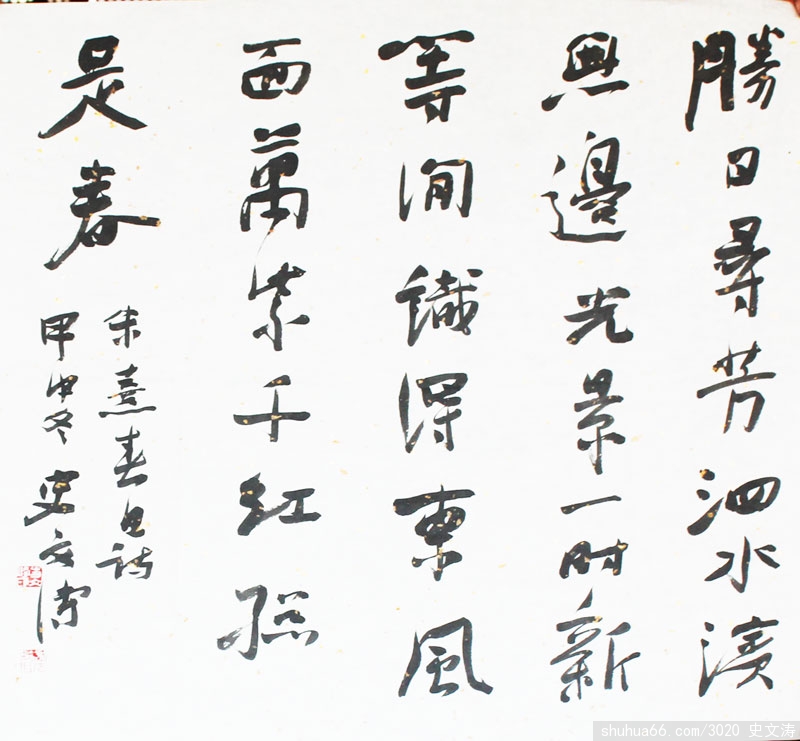 勝日尋芳泗水濱
無邊光景一时新
等閒識得東風
面萬紫千紅總
是春
朱熹春日詩
甲申冬 史文濤
shuhua66.com/3020 史文涛